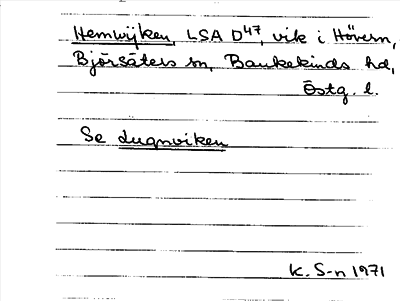 Hemwijken, LSA D47, vik i Hövern,
Björsäters sn, Bankekinds hd,
Östg. l.
Se Lugnviken
K. S-n 1971